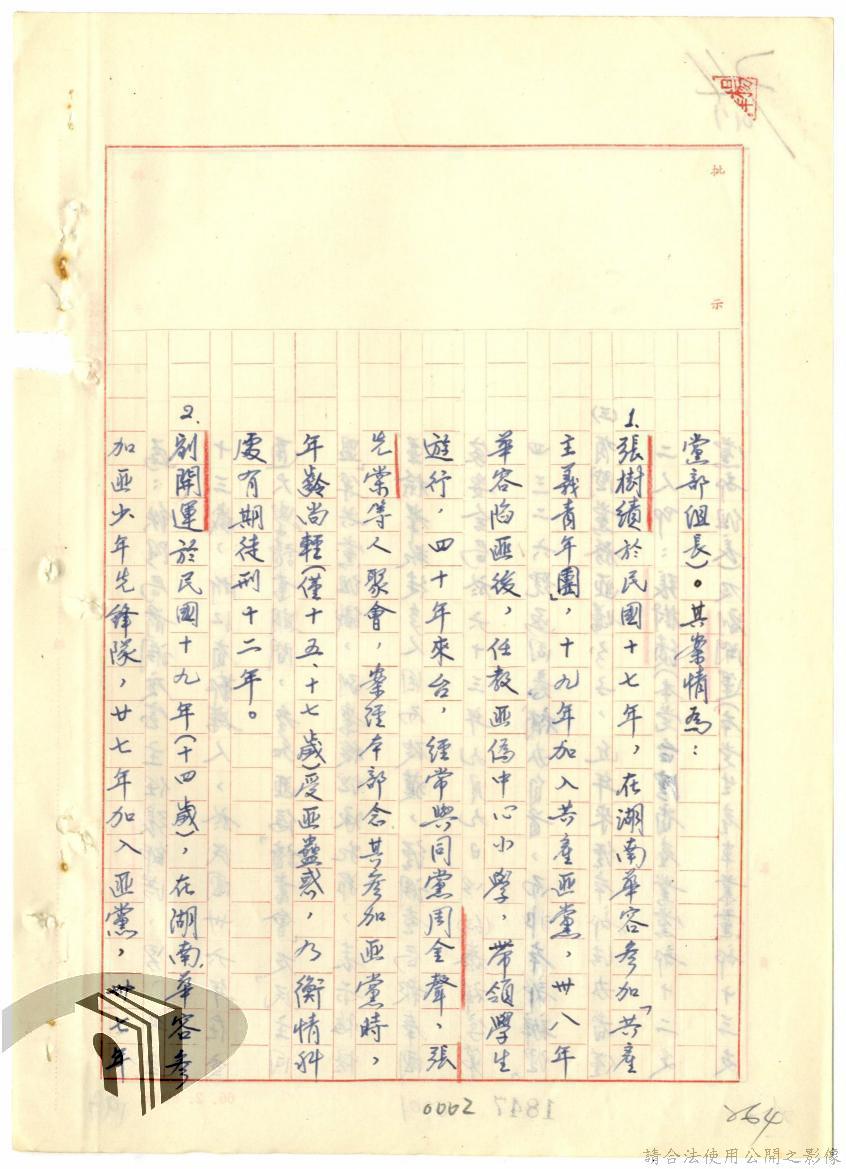 批示
黨部組長)。其案情為:
1.張樹績於民國十七年,在湖南華容參加「共產
主義青年團」,十九年加入共產匪黨,卅八年
華容陷匪後,任教匪偽中心小學,帶領學生
遊行,四十年來台,經常與同黨周金聲,張
先棠等人聚會,案經本部念其參加匪黨時,
年齡尚輕(僅十五、十七歲)受匪蠱惑,乃衡情科
處有期徒刑十二年。
2.劉開運於民國十九年(十四歲),在湖南華容參
加匪少年先鋒隊,廿七年加入匪黨,卅七年
0002
264
請合法使用公開之影像